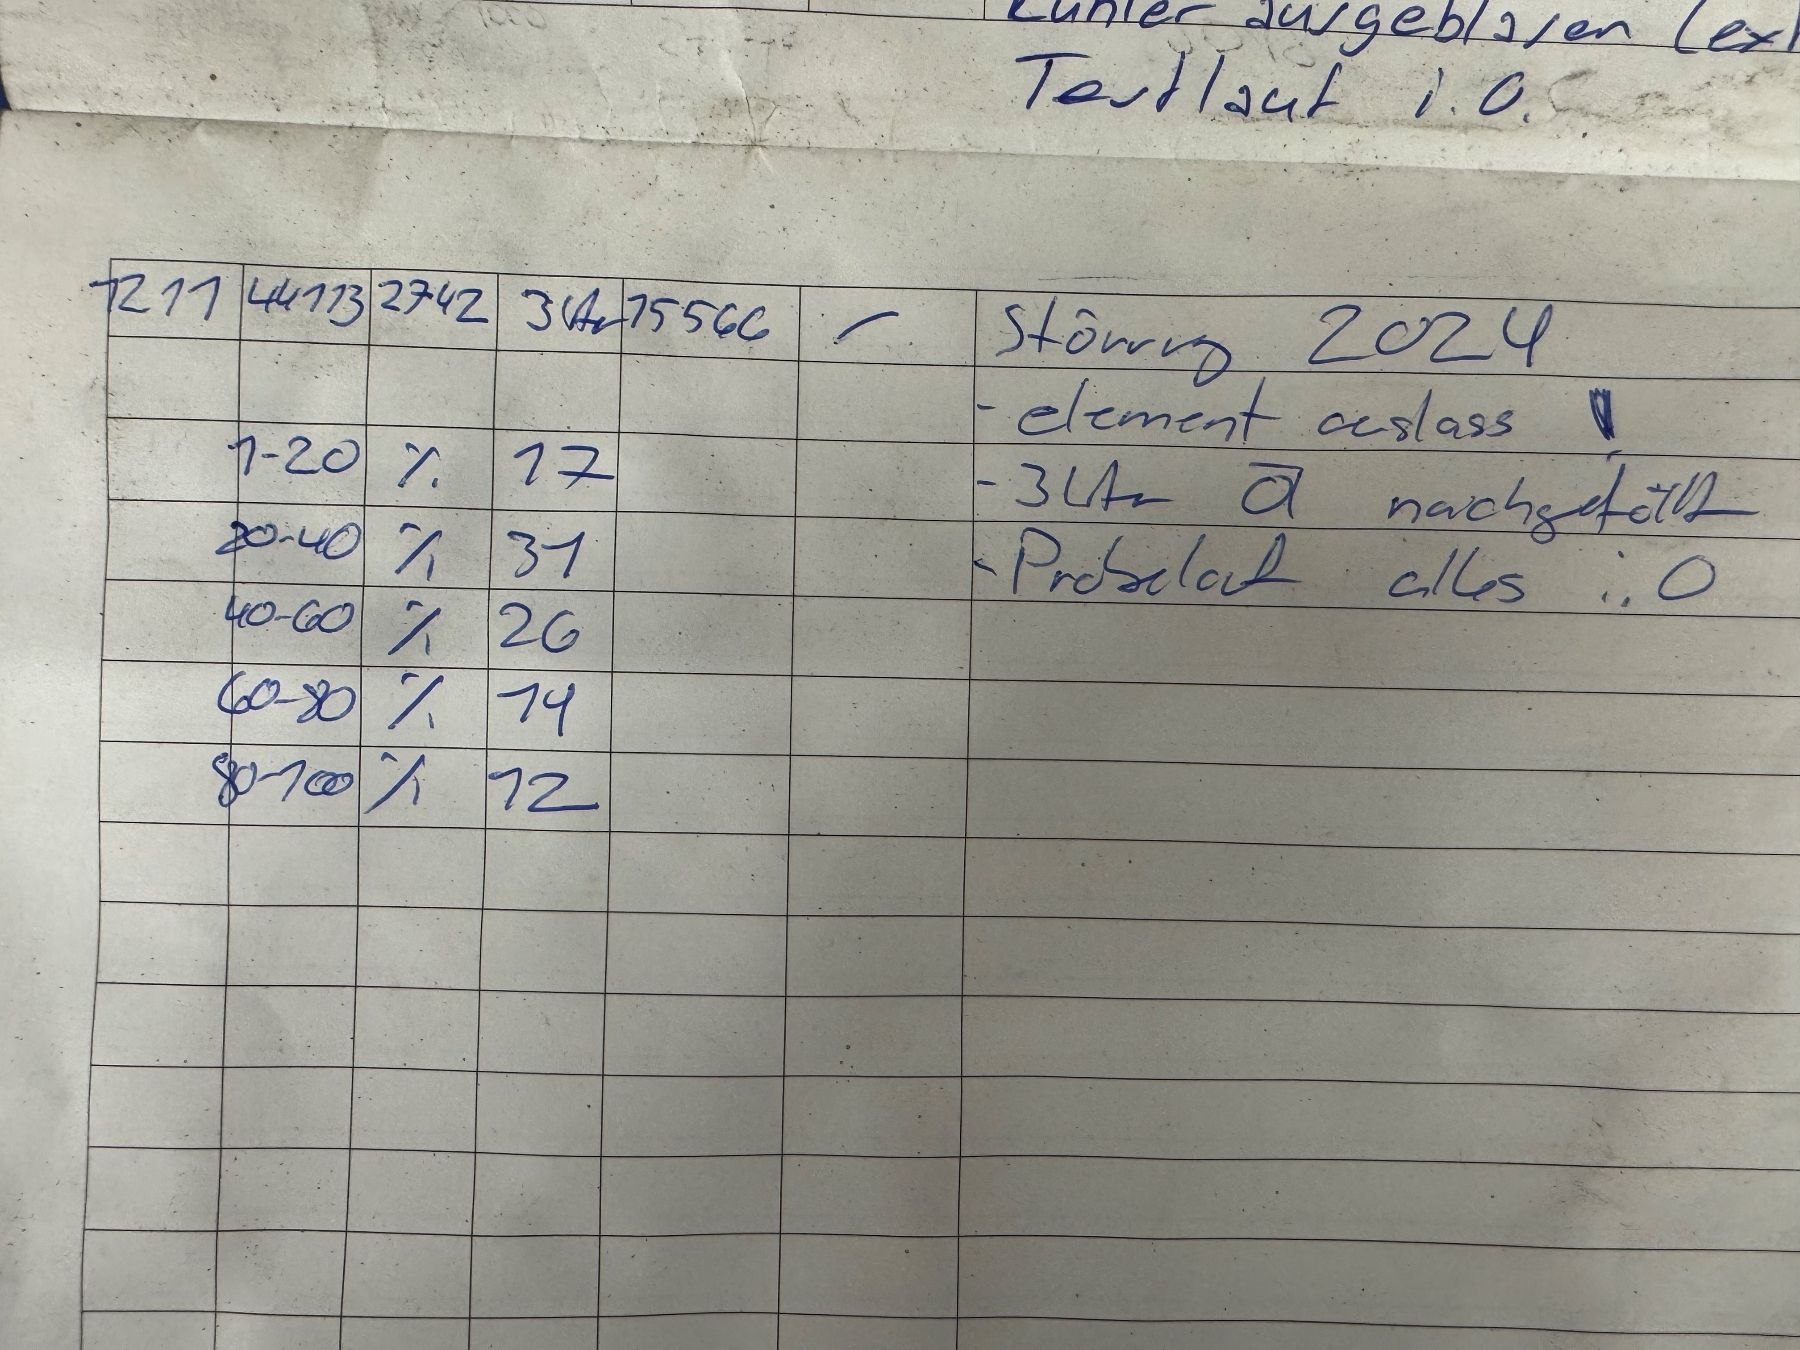 Kühler ausgeblasen (ext
Testlauf i.O.
1211 44113 2742 3 Ltr 15566 - Störung 2024
- element auslass !
1-20 % 17 - 3 Ltr Öl nachgefüllt
20-40 % 31 - Probelauf alles i.O
40-60 % 26
60-80 % 14
80-100 % 12